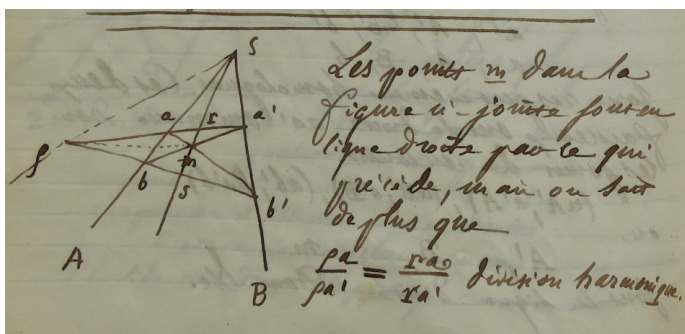 S
a r a'
ρ m
b s b'
A B
Les points m dans la
figure ci-jointe sont en
ligne droite par ce qui
précède, mais on sait
de plus que
ρa/ρa' = ra/ra' division harmonique.